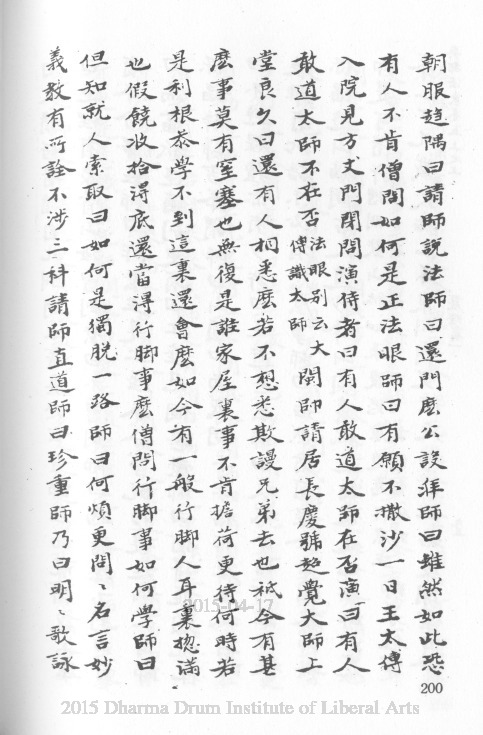 朝服趍隅曰請師説法師曰還門麽公設拜師曰雖然如此恐
有人不肯僧問如何是正法眼師曰有願不撒沙一日王太傅
入院見方丈門閉問演侍者曰有人敢道太師在否演曰有人
敢道太師不在否法眼别云大傅識太師閩帥請居長慶號超覺大師上
堂良久曰還有人相悉麽若不相悉欺謾兄弟去也祇今有甚
麽事莫有窒塞也無復是誰家屋裏事不肯擔荷更待何時若
是利根叅學不到這裏還會麽如今有一般行脚人耳裏揔滿
也假饒收拾淂底還當淂行脚事麽僧問行脚事如何學師曰
但知就人索取曰如何是獨脱一路師曰何煩更問問名言妙
義教有所詮不涉三科請師直道師曰珍重師乃曰明明歌詠
200
2015-04-17
2015 Dharma Drum Institute of Liberal Arts